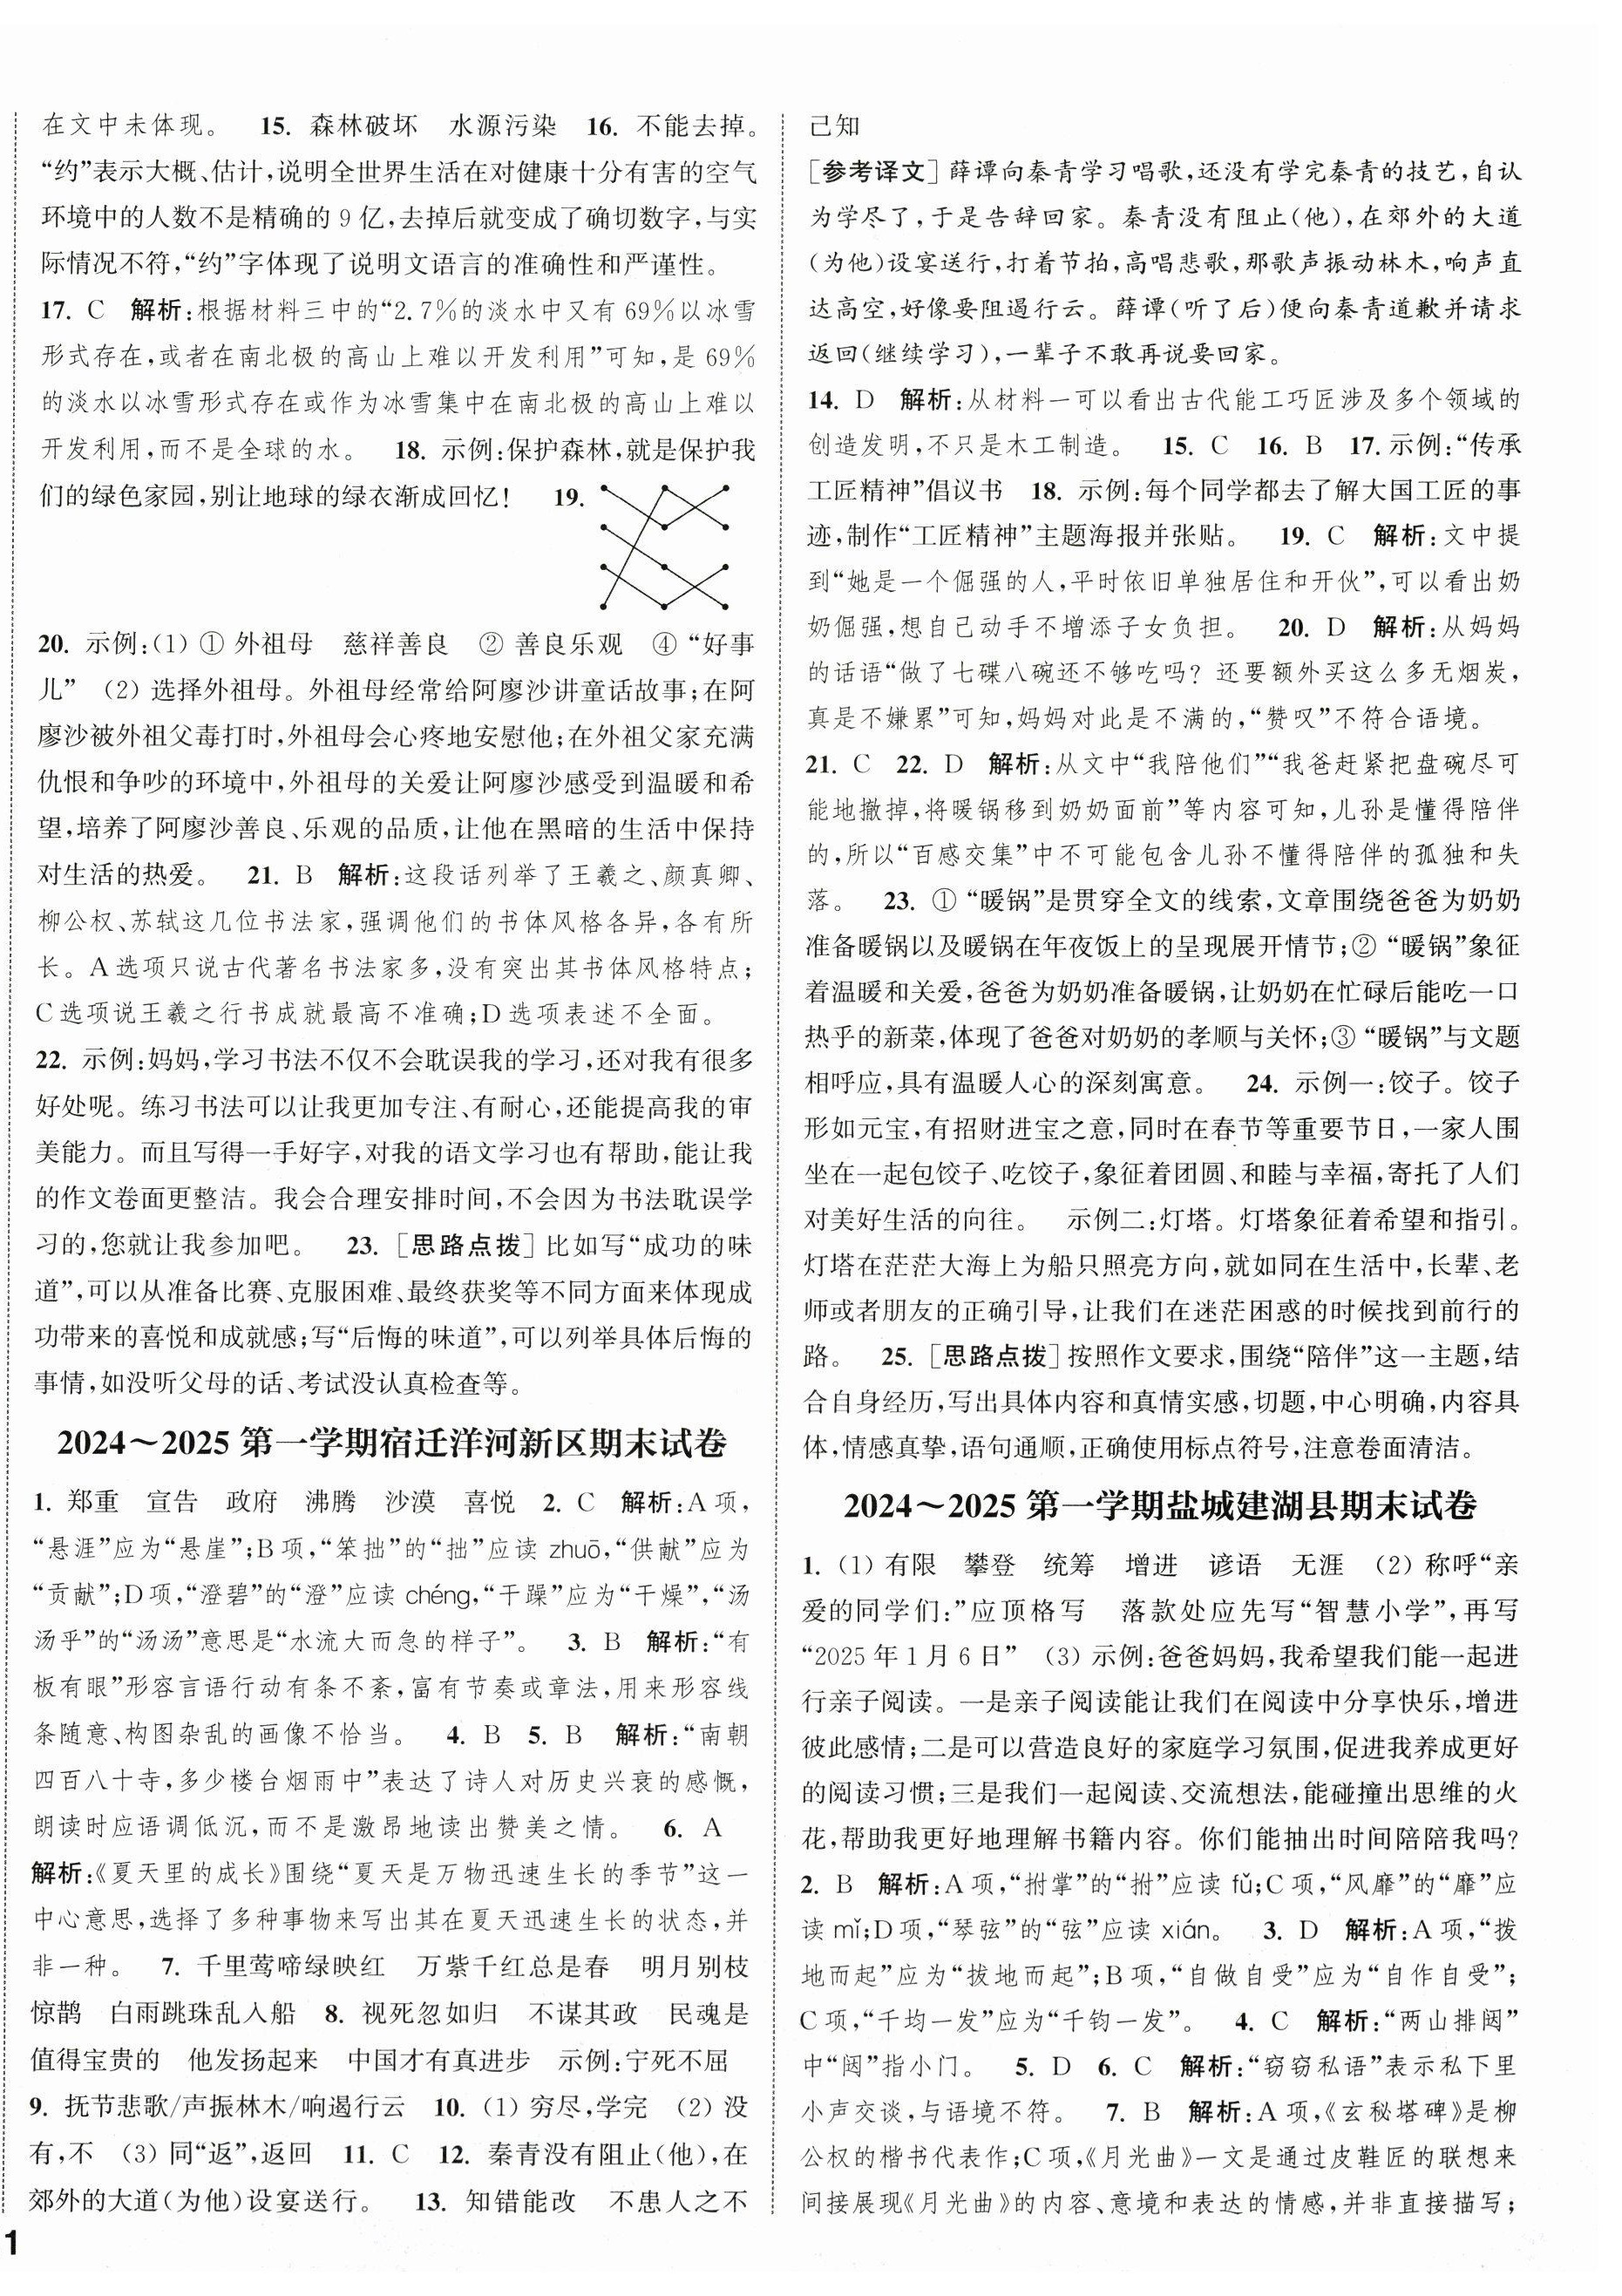 在文中未体现。　15. 森林破坏　水源污染　16. 不能去掉。
“约”表示大概、估计，说明全世界生活在对健康十分有害的空气
环境中的人数不是精确的 9 亿，去掉后就变成了确切数字，与实
际情况不符，“约”字体现了说明文语言的准确性和严谨性。
17. C　解析：根据材料三中的“2.7%的淡水中又有 69%以冰雪
形式存在，或者在南北极的高山上难以开发利用”可知，是 69%
的淡水以冰雪形式存在或作为冰雪集中在南北极的高山上难以
开发利用，而不是全球的水。　18. 示例：保护森林，就是保护我
们的绿色家园，别让地球的绿衣渐成回忆！　19.
20. 示例：(1) ① 外祖母　慈祥善良　② 善良乐观　④ “好事
儿”　(2) 选择外祖母。外祖母经常给阿廖沙讲童话故事；在阿
廖沙被外祖父毒打时，外祖母会心疼地安慰他；在外祖父家充满
仇恨和争吵的环境中，外祖母的关爱让阿廖沙感受到温暖和希
望，培养了阿廖沙善良、乐观的品质，让他在黑暗的生活中保持
对生活的热爱。　21. B　解析：这段话列举了王羲之、颜真卿、
柳公权、苏轼这几位书法家，强调他们的书体风格各异，各有所
长。A 选项只说古代著名书法家多，没有突出其书体风格特点；
C 选项说王羲之行书成就最高不准确；D 选项表述不全面。
22. 示例：妈妈，学习书法不仅不会耽误我的学习，还对我有很多
好处呢。练习书法可以让我更加专注、有耐心，还能提高我的审
美能力。而且写得一手好字，对我的语文学习也有帮助，能让我
的作文卷面更整洁。我会合理安排时间，不会因为书法耽误学
习的，您就让我参加吧。　23. [思路点拨] 比如写“成功的味
道”，可以从准备比赛、克服困难、最终获奖等不同方面来体现成
功带来的喜悦和成就感；写“后悔的味道”，可以列举具体后悔的
事情，如没听父母的话、考试没认真检查等。
2024～2025 第一学期宿迁洋河新区期末试卷
1. 郑重　宣告　政府　沸腾　沙漠　喜悦　2. C　解析：A 项，
“悬涯”应为“悬崖”；B 项，“笨拙”的“拙”应读 zhuō，“供献”应为
“贡献”；D 项，“澄碧”的“澄”应读 chéng，“干躁”应为“干燥”，“汤
汤乎”的“汤汤”意思是“水流大而急的样子”。　3. B　解析：“有
板有眼”形容言语行动有条不紊，富有节奏或章法，用来形容线
条随意、构图杂乱的画像不恰当。　4. B　5. B　解析：“南朝
四百八十寺，多少楼台烟雨中”表达了诗人对历史兴衰的感慨，
朗读时应语调低沉，而不是激昂地读出赞美之情。　6. A
解析：《夏天里的成长》围绕“夏天是万物迅速生长的季节”这一
中心意思，选择了多种事物来写出其在夏天迅速生长的状态，并
非一种。　7. 千里莺啼绿映红　万紫千红总是春　明月别枝
惊鹊　白雨跳珠乱入船　8. 视死忽如归　不谋其政　民魂是
值得宝贵的　他发扬起来　中国才有真进步　示例：宁死不屈
9. 抚节悲歌/声振林木/响遏行云　10. (1) 穷尽，学完　(2) 没
有，不　(3) 同“返”，返回　11. C　12. 秦青没有阻止(他)，在
郊外的大道(为他)设宴送行。　13. 知错能改　不患人之不
1
己知
[参考译文] 薛谭向秦青学习唱歌，还没有学完秦青的技艺，自认
为学尽了，于是告辞回家。秦青没有阻止(他)，在郊外的大道
(为他)设宴送行，打着节拍，高唱悲歌，那歌声振动林木，响声直
达高空，好像要阻遏行云。薛谭(听了后)便向秦青道歉并请求
返回(继续学习)，一辈子不敢再说要回家。
14. D　解析：从材料一可以看出古代能工巧匠涉及多个领域的
创造发明，不只是木工制造。　15. C　16. B　17. 示例：“传承
工匠精神”倡议书　18. 示例：每个同学都去了解大国工匠的事
迹，制作“工匠精神”主题海报并张贴。　19. C　解析：文中提
到“她是一个倔强的人，平时依旧单独居住和开伙”，可以看出奶
奶倔强，想自己动手不增添子女负担。　20. D　解析：从妈妈
的话语“做了七碟八碗还不够吃吗？还要额外买这么多无烟炭，
真是不嫌累”可知，妈妈对此是不满的，“赞叹”不符合语境。
21. C　22. D　解析：从文中“我陪他们”“我爸赶紧把盘碗尽可
能地撤掉，将暖锅移到奶奶面前”等内容可知，儿孙是懂得陪伴
的，所以“百感交集”中不可能包含儿孙不懂得陪伴的孤独和失
落。　23. ① “暖锅”是贯穿全文的线索，文章围绕爸爸为奶奶
准备暖锅以及暖锅在年夜饭上的呈现展开情节；② “暖锅”象征
着温暖和关爱，爸爸为奶奶准备暖锅，让奶奶在忙碌后能吃一口
热乎的新菜，体现了爸爸对奶奶的孝顺与关怀；③ “暖锅”与文题
相呼应，具有温暖人心的深刻寓意。　24. 示例一：饺子。饺子
形如元宝，有招财进宝之意，同时在春节等重要节日，一家人围
坐在一起包饺子、吃饺子，象征着团圆、和睦与幸福，寄托了人们
对美好生活的向往。　示例二：灯塔。灯塔象征着希望和指引。
灯塔在茫茫大海上为船只照亮方向，就如同在生活中，长辈、老
师或者朋友的正确引导，让我们在迷茫困惑的时候找到前行的
路。　25. [思路点拨] 按照作文要求，围绕“陪伴”这一主题，结
合自身经历，写出具体内容和真情实感，切题，中心明确，内容具
体，情感真挚，语句通顺，正确使用标点符号，注意卷面清洁。
2024～2025 第一学期盐城建湖县期末试卷
1. (1) 有限　攀登　统筹　增进　谚语　无涯　(2) 称呼“亲
爱的同学们：”应顶格写　落款处应先写“智慧小学”，再写
“2025 年 1 月 6 日”　(3) 示例：爸爸妈妈，我希望我们能一起进
行亲子阅读。一是亲子阅读能让我们在阅读中分享快乐，增进
彼此感情；二是可以营造良好的家庭学习氛围，促进我养成更好
的阅读习惯；三是我们一起阅读、交流想法，能碰撞出思维的火
花，帮助我更好地理解书籍内容。你们能抽出时间陪陪我吗？
2. B　解析：A 项，“拊掌”的“拊”应读 fǔ；C 项，“风靡”的“靡”应
读 mǐ；D 项，“琴弦”的“弦”应读 xián。　3. D　解析：A 项，“拨
地而起”应为“拔地而起”；B 项，“自做自受”应为“自作自受”；
C 项，“千均一发”应为“千钧一发”。　4. C　解析：“两山排闼”
中“闼”指小门。　5. D　6. C　解析：“窃窃私语”表示私下里
小声交谈，与语境不符。　7. B　解析：A 项，《玄秘塔碑》是柳
公权的楷书代表作；C 项，《月光曲》一文是通过皮鞋匠的联想来
间接展现《月光曲》的内容、意境和表达的情感，并非直接描写；